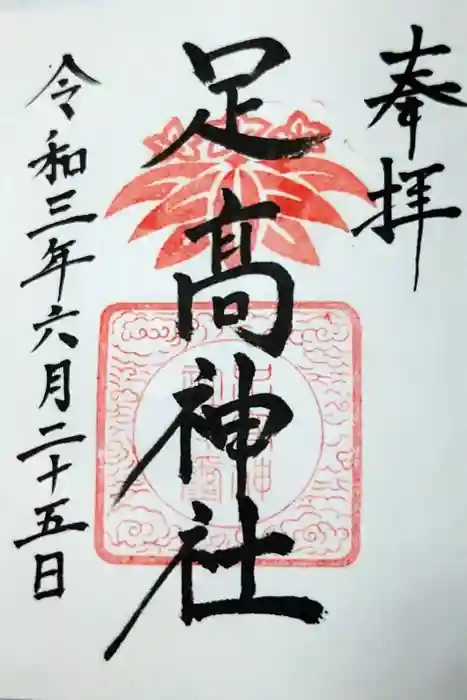 奉拝
足高神社
令和三年六月二十五日